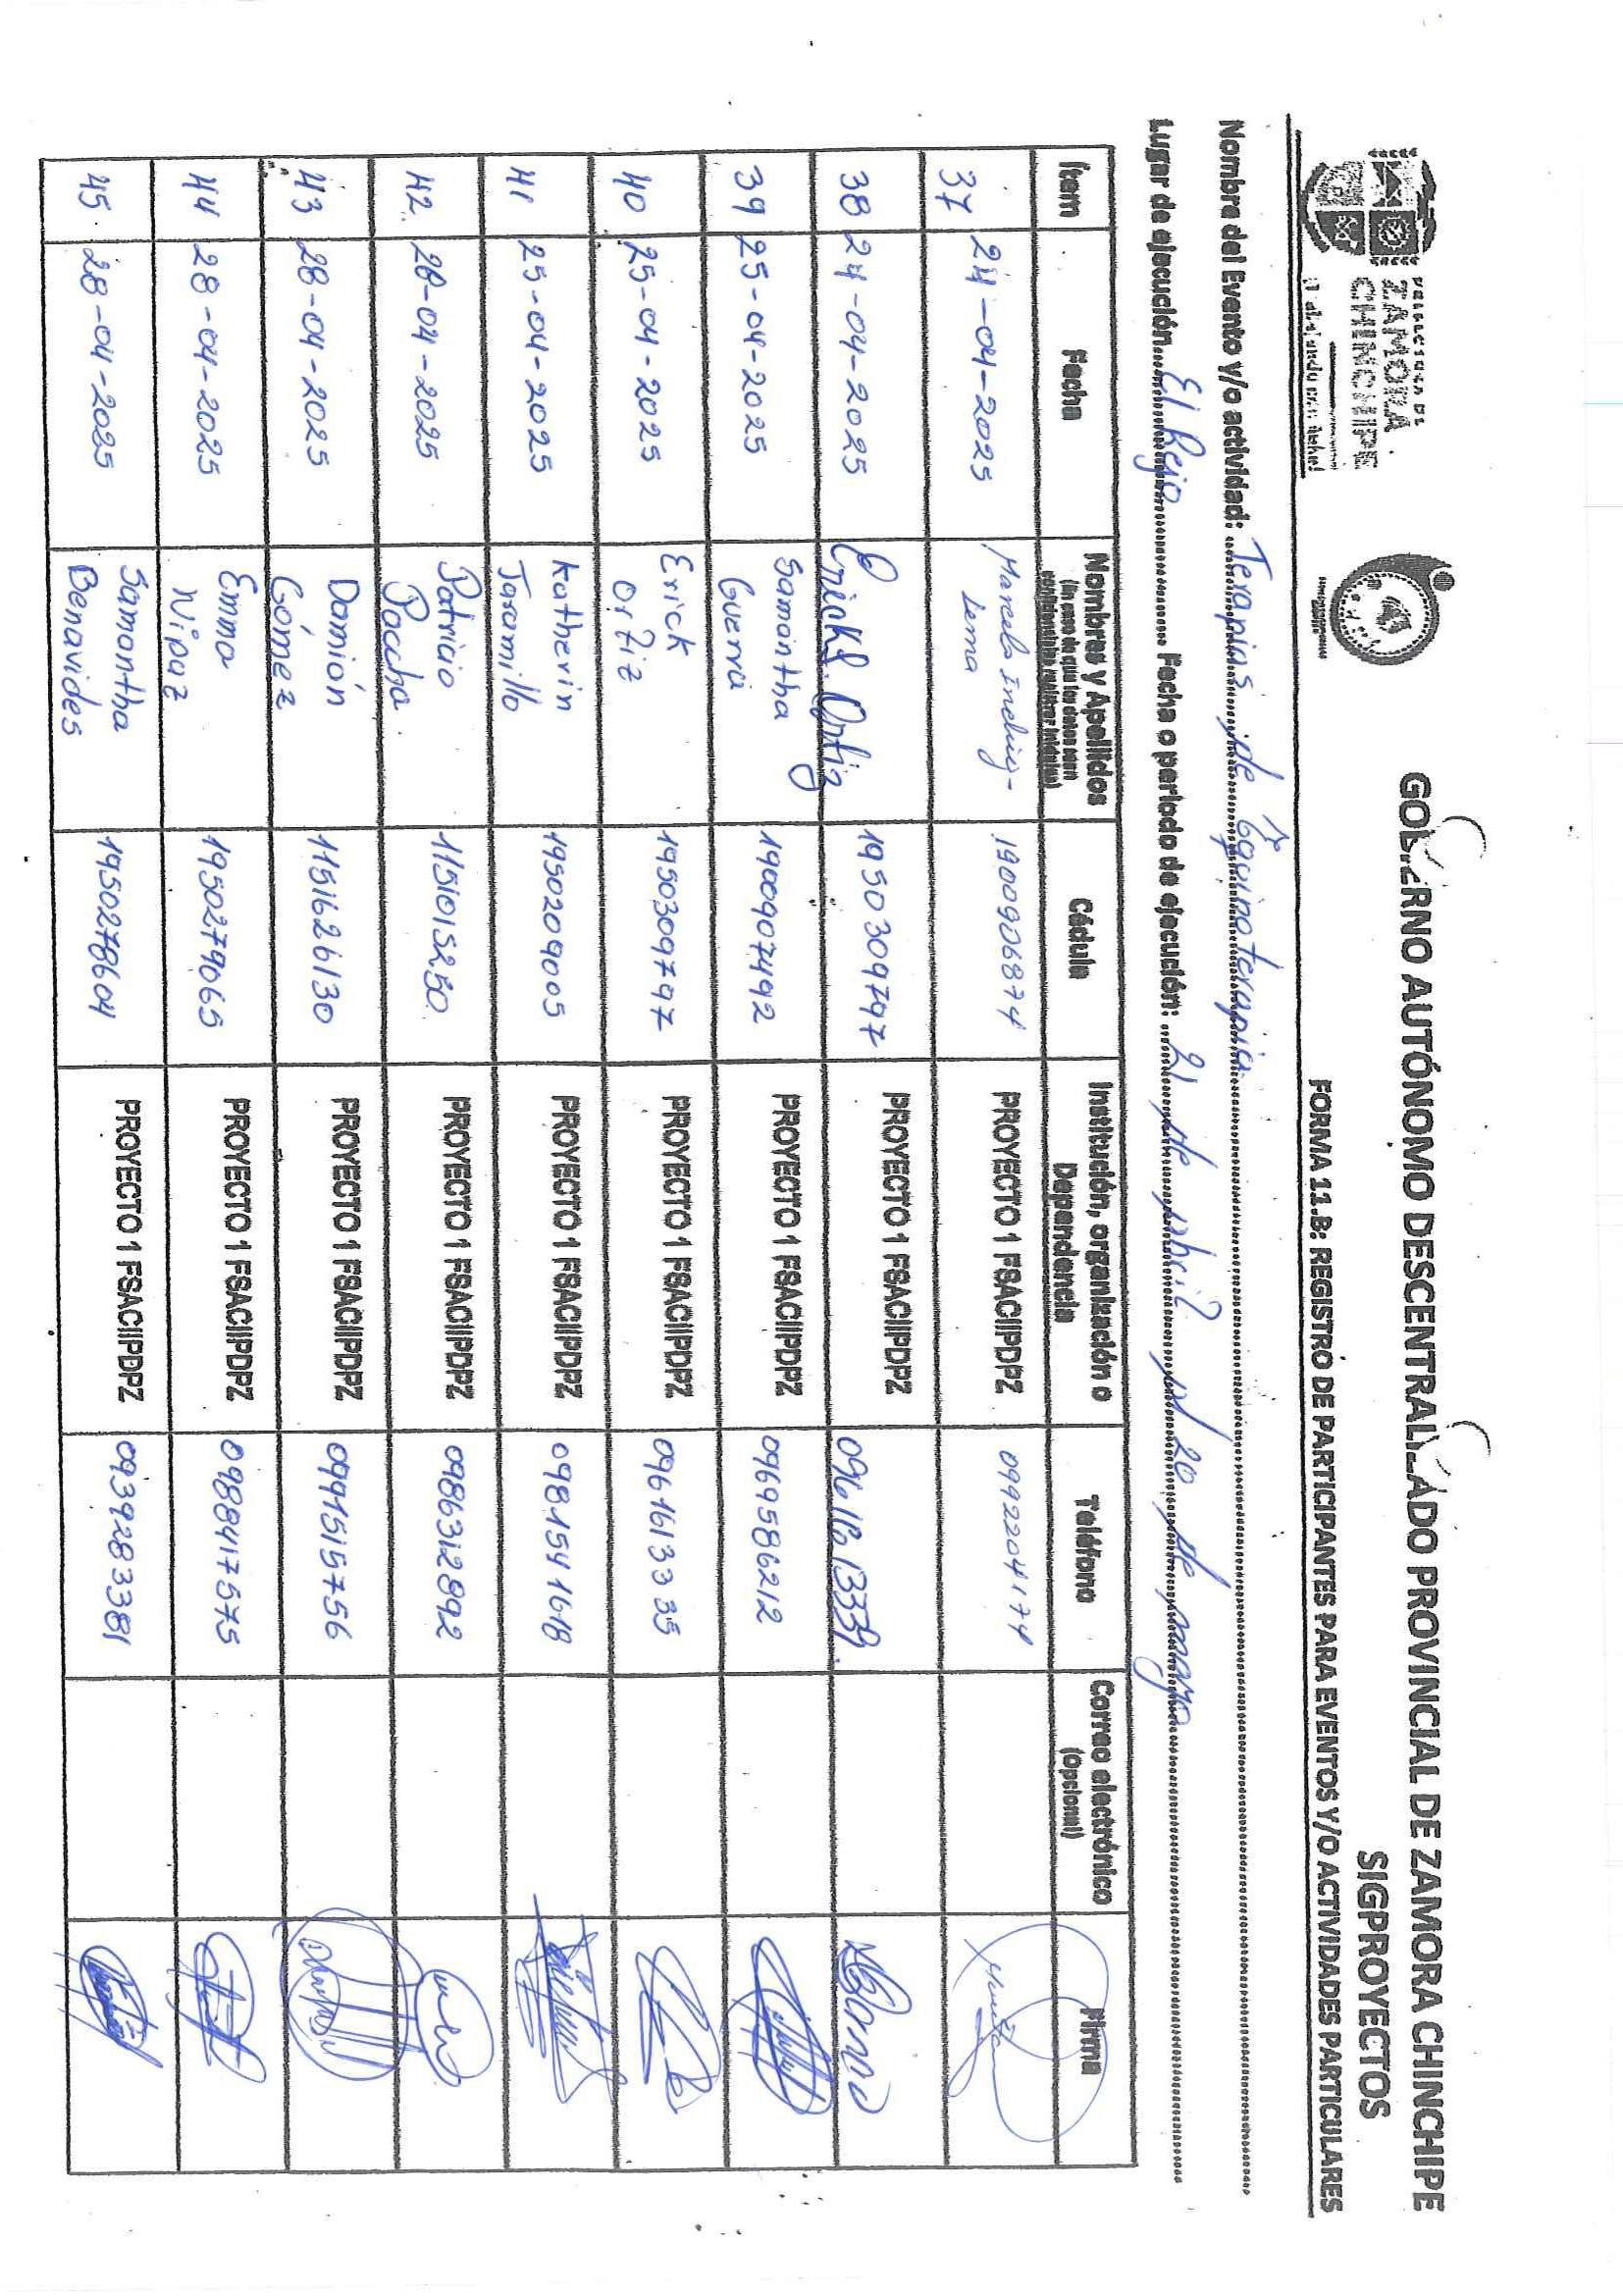 PREFECTURA DE
ZAMORA
CHINCHIPE
GOBIERNO AUTÓNOMO DESCENTRALIZADO PROVINCIAL DE ZAMORA CHINCHIPE
SIGPROYECTOS
FORMA 11.B: REGISTRO DE PARTICIPANTES PARA EVENTOS Y/O ACTIVIDADES PARTICULARES
Nombre del Evento y/o actividad: Terapias de Equinoterapia
Lugar de ejecución El Rejo Fecha o periodo de ejecución: 21 de abril al 20 de mayo
Ítem Fecha Nombres y Apellidos (En caso de que los datos sean confidenciales registrar iniciales) Cédula Institución, organización o Dependencia Teléfono Correo electrónico (Opcional) Firma
37 24-04-2025 Marcela Lema 1900906874 PROYECTO 1 FSACIIPDPZ 0992204174
38 24-04-2025 Erick Ortiz 1950309797 PROYECTO 1 FSACIIPDPZ
39 25-04-2025 Samantha Guerra 1900907492 PROYECTO 1 FSACIIPDPZ 0969586212
40 25-04-2025 Erick Ortiz 1950309797 PROYECTO 1 FSACIIPDPZ 0961613335
41 25-04-2025 Katherin Jaramillo 1950209005 PROYECTO 1 FSACIIPDPZ 0981541618
42. 28-04-2025 Patricio Paccha 1151015250 PROYECTO 1 FSACIIPDPZ 0986312892
43 28-04-2025 Damián Gómez 1151626130 PROYECTO 1 FSACIIPDPZ 0991515756
44 28-04-2025 Emma 1950279065 PROYECTO 1 FSACIIPDPZ 0988417575
45. 28-04-2025 Samantha Benavides 1950278604 PROYECTO 1 FSACIIPDPZ 0939283381